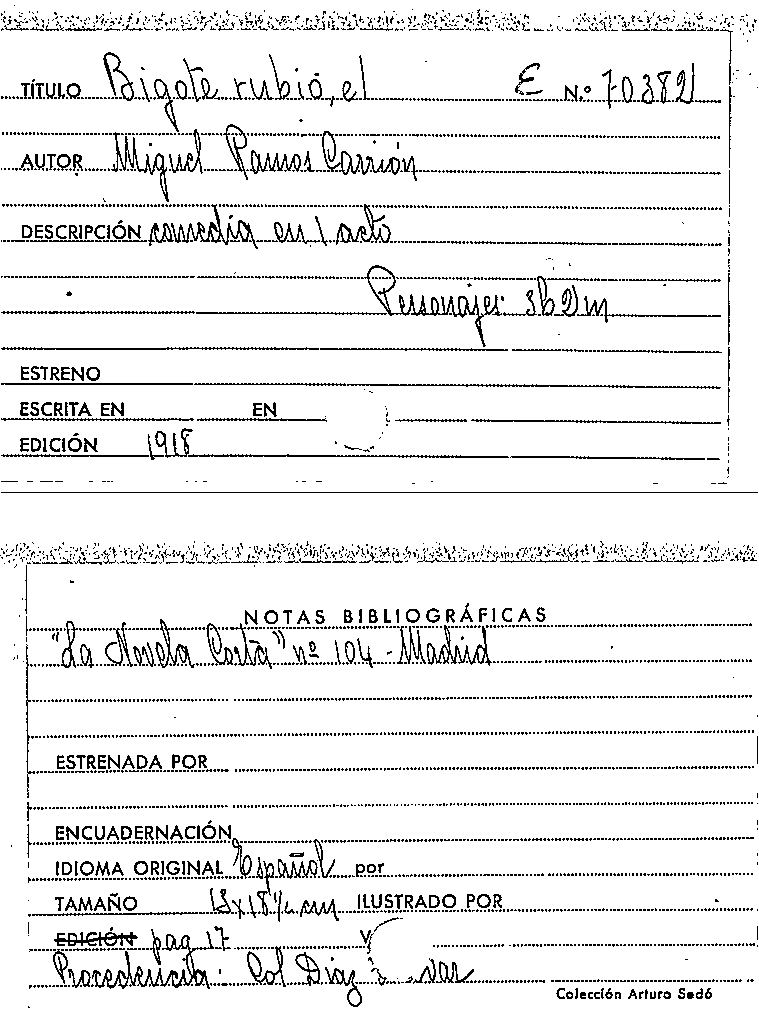 TÍTULO Bigote rubio, el E N.º 70382
AUTOR Miguel Ramos Carrión
DESCRIPCIÓN comedia en 1 acto
Personajes: 3h 2m
ESTRENO
ESCRITA EN EN
EDICIÓN 1918
NOTAS BIBLIOGRÁFICAS
"La Novela Corta" nº 104 - Madrid
ESTRENADA POR
ENCUADERNACIÓN
IDIOMA ORIGINAL Español por
TAMAÑO cm ILUSTRADO POR
EDICIÓN pag 17
Procedencia: Col Díaz
Colección Arturo Sedó